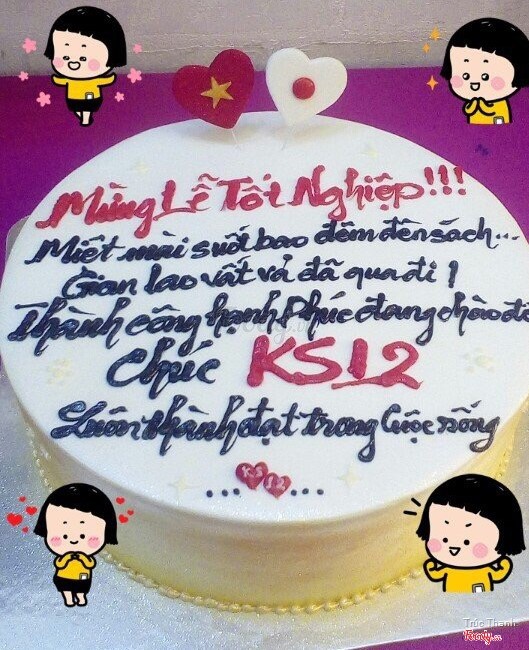 Mừng Lễ Tốt Nghiệp!!!
Miệt mài suốt bao đêm đèn sách...
Gian lao vất vả đã qua đi!
Thành công hạnh phúc đang chào đó
Chúc KS12
Luôn thành đạt trong cuộc sống
...KS 12...
Trúc Thanh
Foody.vn